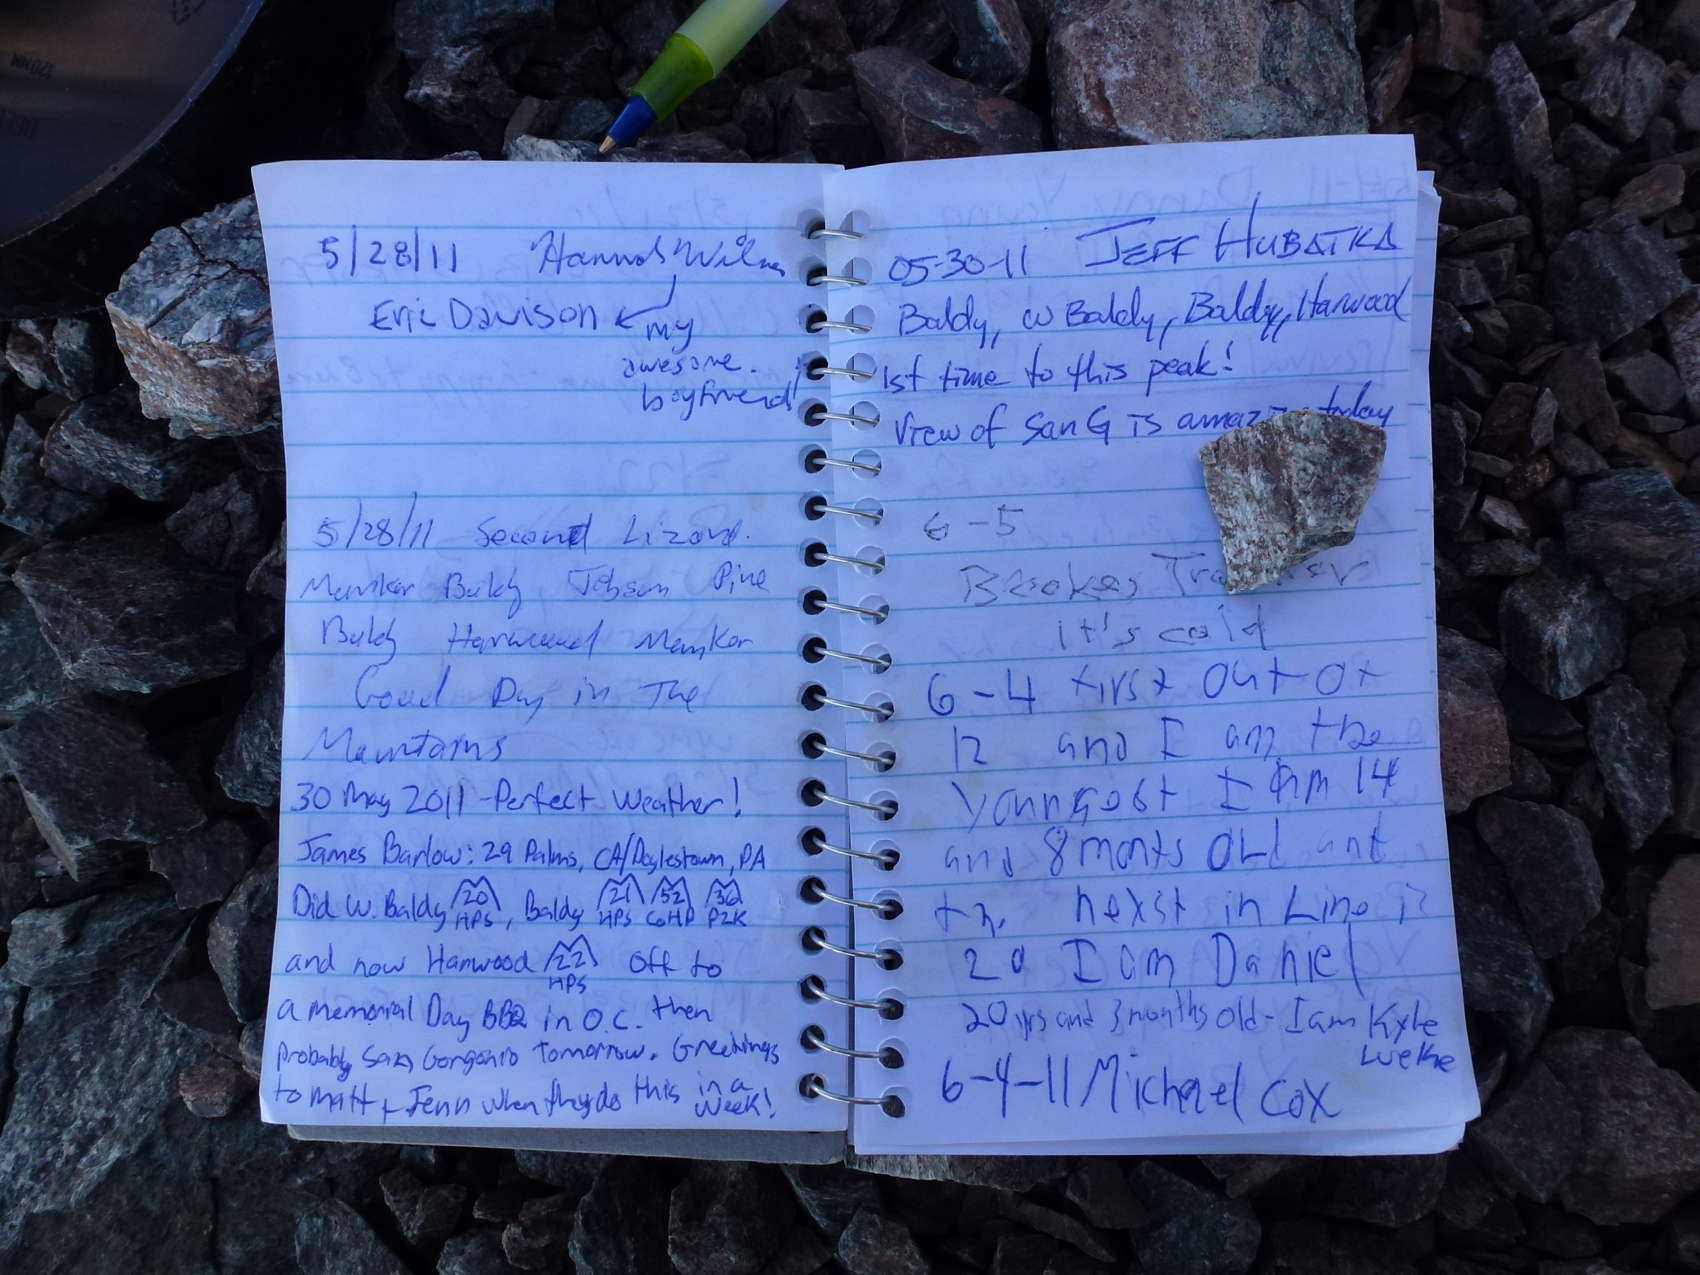 5/28/11 Hannah
Eric Davison my
awesome
boyfriend!
5/28/11 Second Lizard.
Baldy Pine
Baldy Harwood
Good Day in The
Mountains
30 May 2011 - Perfect Weather!
James Barlow: 29 Palms, CA/Doylestown, PA
Did W. Baldy 20 HPS, Baldy 21 HPS 52 CoHP 36 P2K
and now Harwood 22 HPS off to
a Memorial Day BBQ in O.C. then
probably San Gorgonio tomorrow. Greetings
to Matt + Jenn when they do this in a
week!
05-30-11 JEFF HUBATKA
Baldy, W Baldy, Baldy, Harwood
1st time to this peak!
View of San G is today
6-5
it's cold
6-4 first out of
12 and I am the
youngost I am 14
and 8 monts OLd ant
the nexst in Line i?
20 I am Daniel
20 yrs and 3 months old - I am Kyle
Welke
6-4-11 Michael Cox